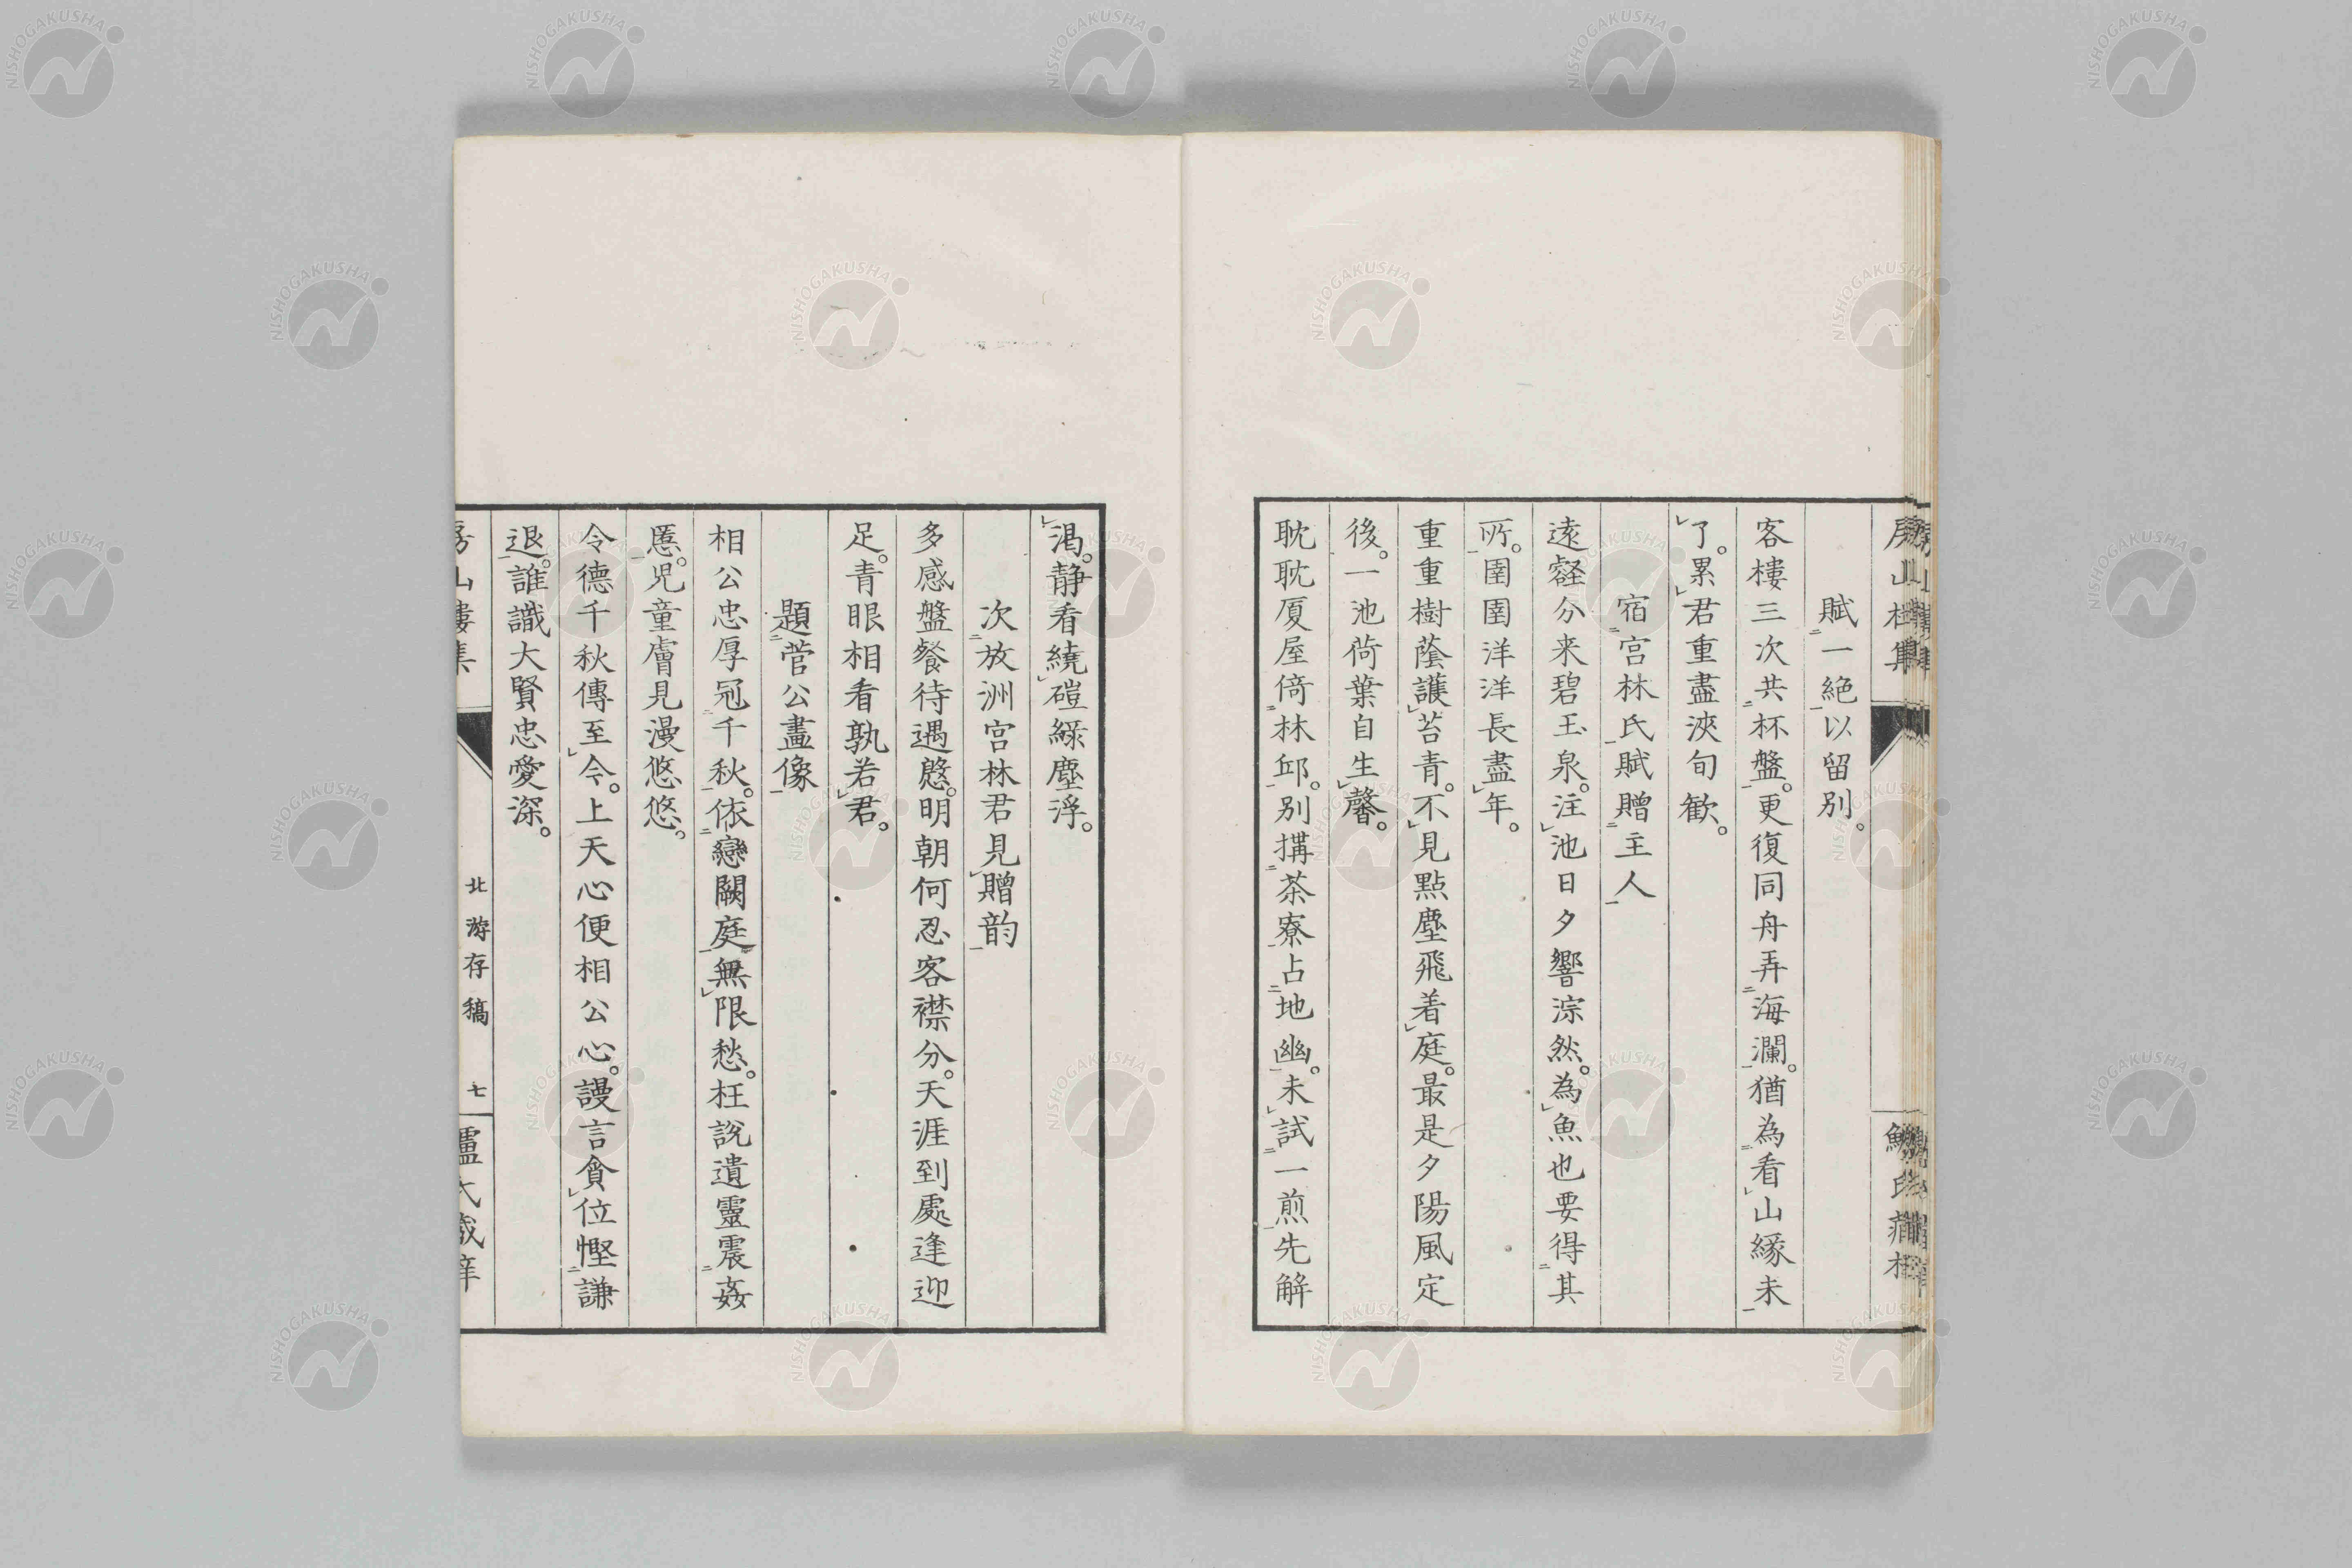 賦一絶以留別。
客樓三次共杯盤。更復同舟弄海瀾。猶為看山緣未
了。累君重盡浹旬歓。
宿宮林氏賦贈主人
遠壑分来碧玉泉。注池日夕響淙然。為魚也要得其
所。圉圉洋洋長盡年。
重重樹蔭護苔青。不見點塵飛着庭。最是夕陽風定
後。一池荷葉自生馨。
耽耽厦屋倚林邱。別搆茶寮占地幽。未試一煎先解
渇。静看繞磑綠塵浮。
次放洲宮林君見贈韵
多感盤餐待遇慇。明朝何忍客襟分。天涯到處逢迎
足。青眼相看孰若君。
題菅公畫像
相公忠厚冠千秋。依戀闕庭無限愁。枉說遺靈震姦
慝。児童膚見漫悠悠。
令德千秋傳至今。上天心便相公心。謾言貪位慳謙
退。誰識大賢忠愛深。
房山樓集
北游存稿
七
NISHOGAKUSHA